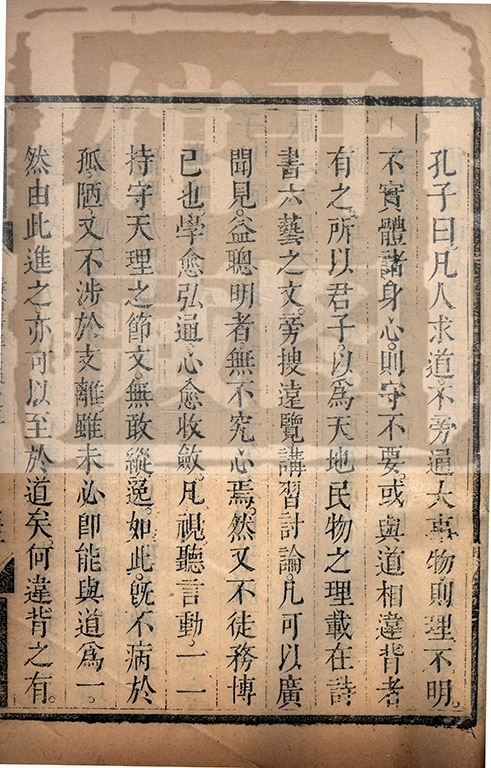 孔子曰凡人求道不旁通大事物則理不明。
不實體諸身心則守不要或與道相違背者
有之所以君子以為天地民物之理載在詩
書六藝之文旁搜遠覽講習討論凡可以廣
聞見益聰明者無不究心焉然又不徒務博
已也學愈弘通心愈收斂凡視聽言動一一
持守天理之節文無敢縱逸如此既不病於
孤陋又不涉於支離雖未必卽能與道為一
然由此進之亦可以至於道矣何違背之有。